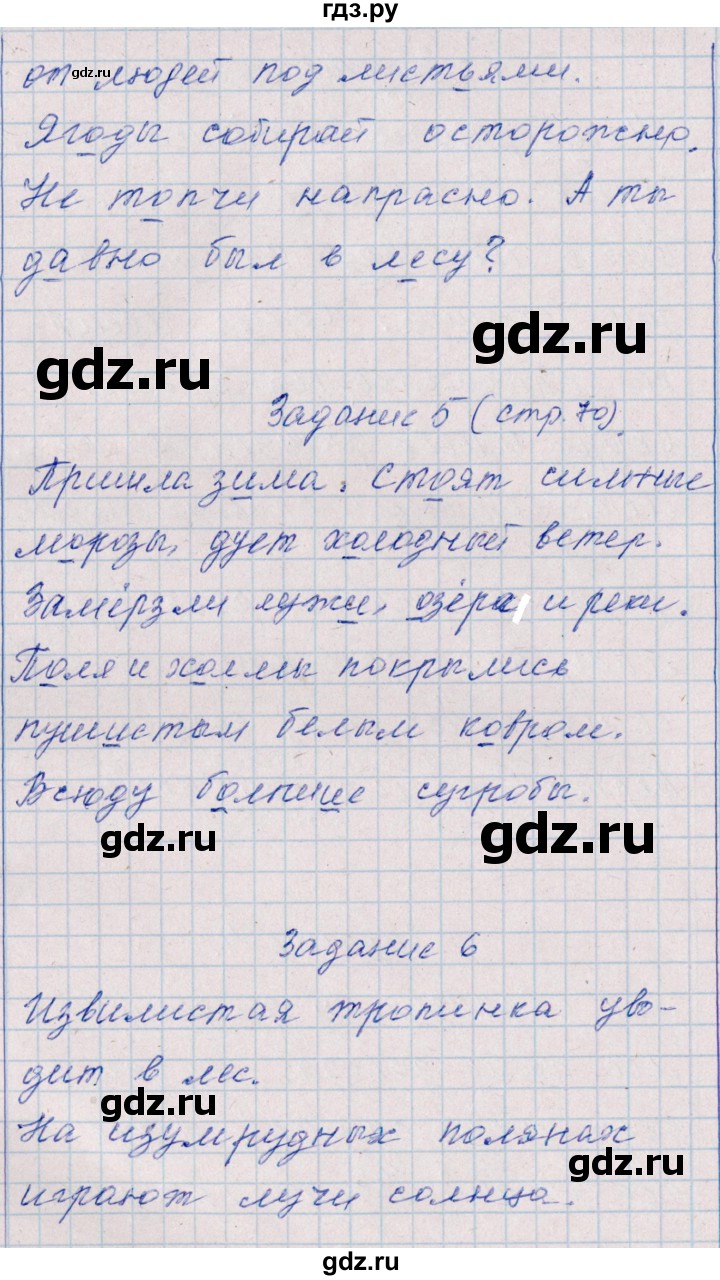 гдз.ру
от людей под листьями.
gdz.ru
Ягоды собирай осторожно.
Не топчи напрасно. А ты
давно был в лесу?
gdz.ru
gdz.ru
Задание 5 (стр. 70).
Пришла зима. Стоят сильные
морозы, дует холодный ветер.
Замёрзли лужи, озёра и реки.
Поля и холмы покрылись
пушистым белым ковром.
Всюду большие сугробы.
gdz.ru
gdz.ru
Задание 6
Извилистая тропинка уво-
дит в лес.
gdz.ru
На изумрудных полянах
gdz.ru
играют лучи солнца.
gdz.ru